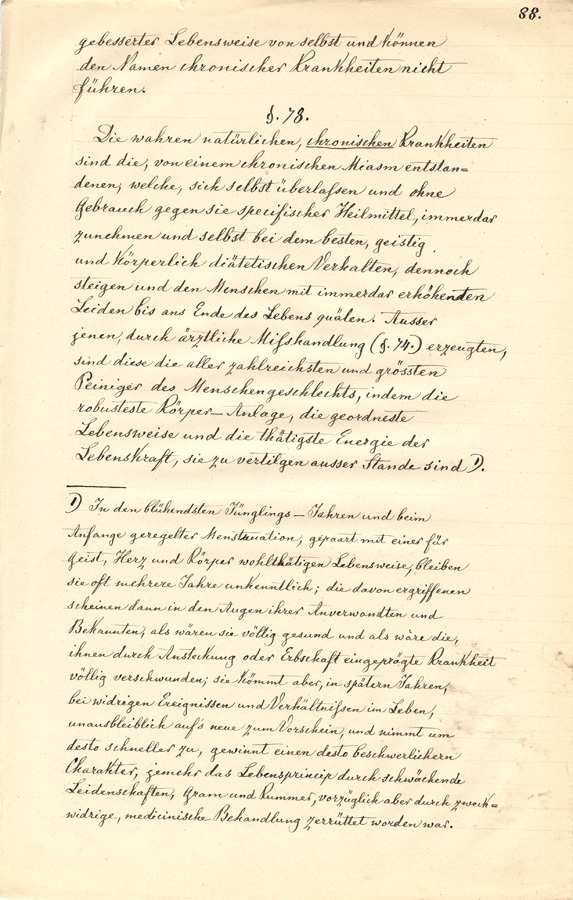 88.
gebesserter Lebensweise von selbst und können
den Namen chronischer Krankheiten nicht
führen.
§. 78.
Die wahren natürlichen, chronischen Krankheiten
sind die, von einem chronischen Miasm entstan=
denen, welche, sich selbst überlassen und ohne
Gebrauch gegen sie specifischer Heilmittel, immerdar
zunehmen und selbst bei dem besten, geistig
und körperlich diätetischen Verhalten, dennoch
steigen und den Menschen mit immerdar erhöhenden
Leiden bis ans Ende des Lebens quälen. Ausser
jenen, durch ärztliche Mißhandlung (§. 74.) erzeugten,
sind diese die aller zahlreichsten und grössten
Peiniger des Menschengeschlechts, indem die
robusteste Körper-Anlage, die geordneste
Lebensweise und die thätigste Energie der
Lebenskraft, sie zu vertilgen ausser Stande sind 1).
1) In den blühendsten Jünglings-Jahren und beim
Anfange geregelter Menstruation, gepaart mit einer für
Geist, Herz und Körper wohlthätigen Lebensweise, bleiben
sie oft mehrere Jahre unkenntlich; die davon ergriffenen
scheinen dann in den Augen ihrer Anverwandten und
Bekannten, als wären sie völlig gesund und als wäre die,
ihnen durch Ansteckung oder Erbschaft eingeprägte Krankheit
völlig verschwunden; sie kömmt aber, in spätern Jahren,
bei widrigen Ereignissen und Verhältnißen im Leben,
unausbleiblich auf's neue zum Vorschein, und nimmt um
desto schneller zu, gewinnt einen desto beschwerlichern
Charakter, jemehr das Lebensprincip durch schwächende
Leidenschaften, Gram und Kummer, vorzüglich aber durch zweck=
widrige, medicinische Behandlung zerrüttet worden war.